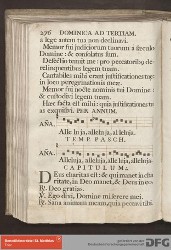 296 DOMINICA AD TERTIAM.
a lege autem tua non declinavi.
Memor fui judiciorum tuorum à seculo
Domine: & consolatus sum.
Defectio tenuit me: pro peccatoribus de-
relinquentibus legem tuam.
Cantabiles mihi erant justificationes tuæ:
in loco peregrinationis meæ.
Memor fui nocte nominis tui Domine:
& custodivi legem tuam.
Hæc facta est mihi: quia justificationes tu-
as exquisivi. PER ANNUM.
AÑA.
Alleluja, alleluja, alleluja.
TEMP. PASCH.
AÑA.
Alleluja, alleluja, alleluja.
CAPITULUM.
Deus charitas est: & qui manet in cha-
ritate, in Deo manet, & Deus in eo.
℟. Deo gratias.
℣. Ego dixi, Domine miserere mei.
℟. Sana animam meam, quia peccavi tibi.
DFG